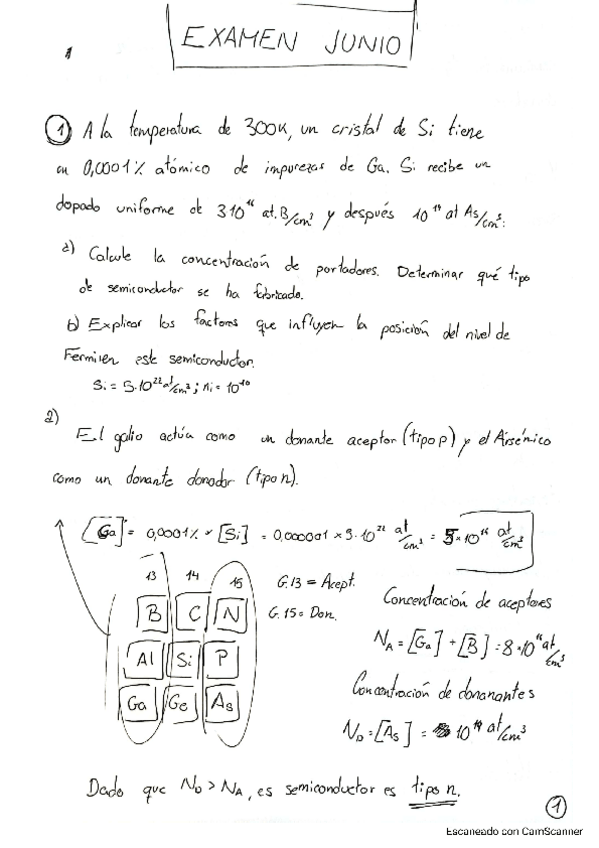 1
EXAMEN JUNIO
① A la temperatura de 300K, un cristal de Si tiene
un 0,0001% atómico de impurezas de Ga. Si recibe un
dopado uniforme de 3 10¹⁶ at.B/cm³ y después 10¹⁷ at As/cm³:
a) Calcule la concentración de portadores. Determinar qué tipo
de semiconductor se ha fabricado.
b) Explicar los factores que influyen la posición del nivel de
Fermi en este semiconductor.
Si = 5·10²² at/cm³; ni = 10¹⁰
a)
El galio actúa como un donante aceptor (tipo p) y el Arsénico
como un donante donador (tipo n).
[Ga] = 0,0001% × [Si] = 0,000001 × 5·10²² at/cm³ = 5×10¹⁶ at/cm³
13 14 15
B C N
Al Si P
Ga Ge As
G.13 = Acept.
G.15 = Don.
Concentración de aceptores
N_A = [Ga] + [B] = 8·10¹⁶ at/cm³
Concentración de donanantes
N_D = [As] = 10¹⁷ at/cm³
Dado que N_D > N_A, es semiconductor es tipo n.
①
Escaneado con CamScanner